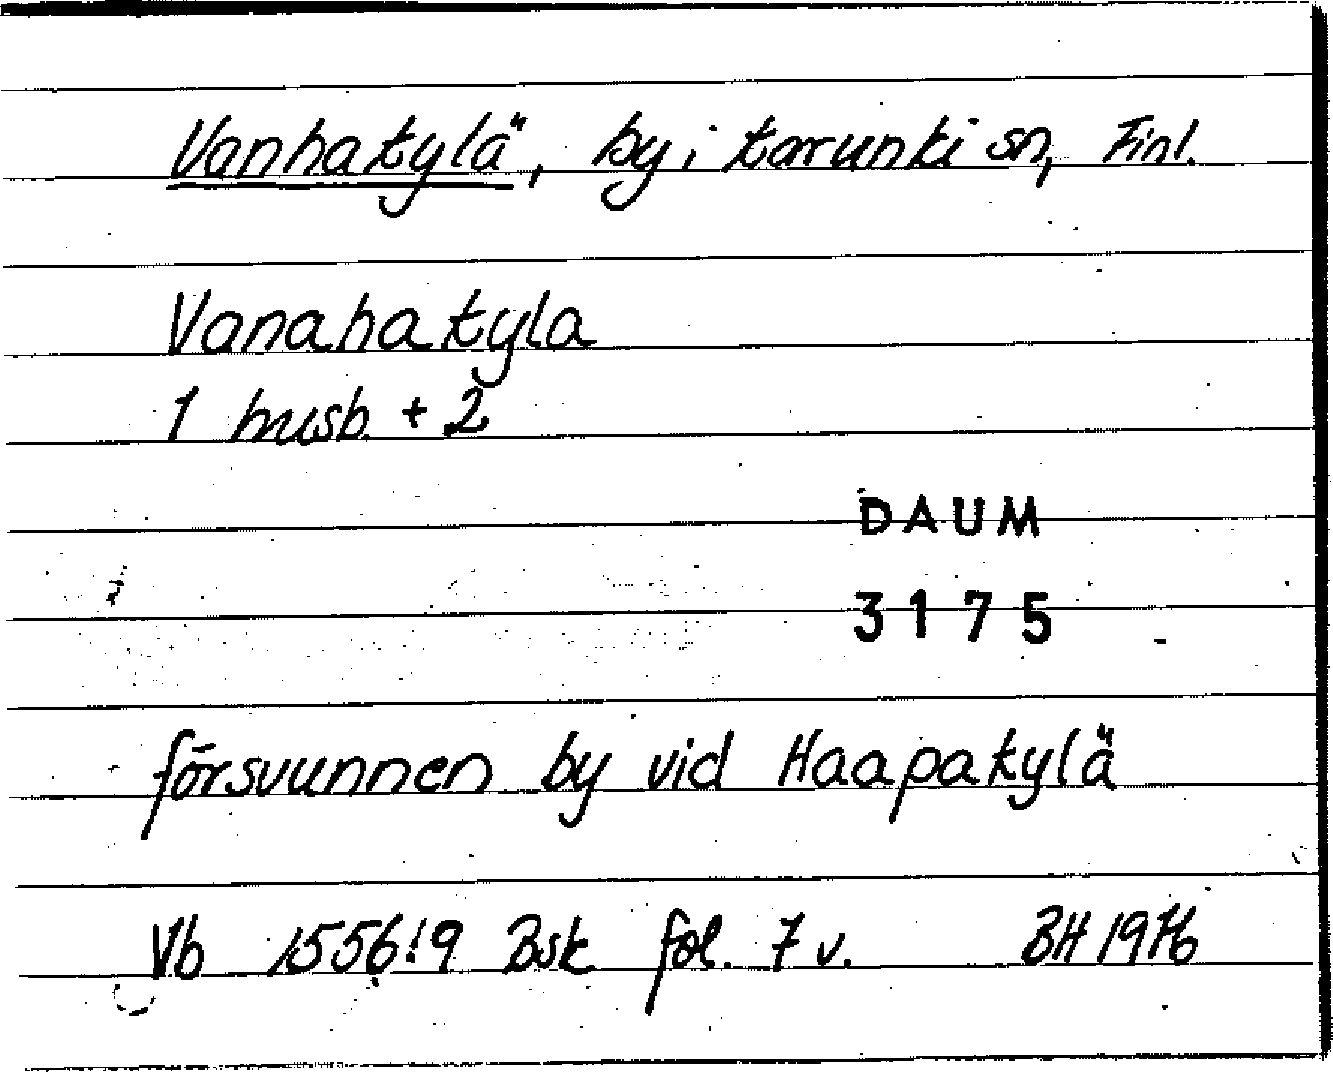 Vanhatylä, by i Karunki sn, Finl.
Vanahatyla
1 husb. + 2
DAUM
3175
försvunnen by vid Haapakylä
Vb 1556:9 Bsk fol. 7 v. BH 1976